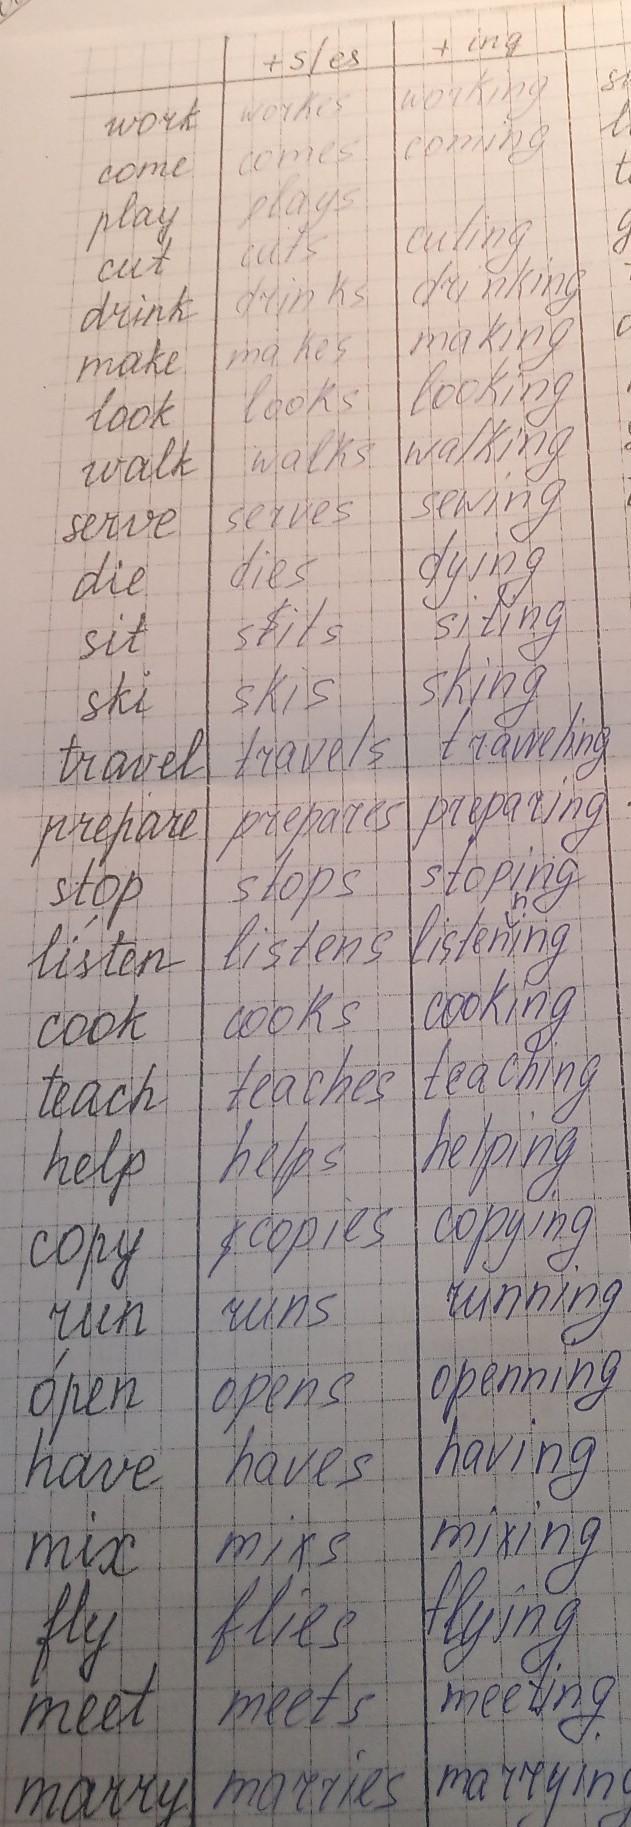 + s/es + ing
work workes working
come comes coming
play plays
cut cuts cuting
drink drinks drinking
make makes making
look looks looking
walk walks walking
serve serves serving
die dies dying
sit sits siting
ski skis sking
travel travels
prepare prepares preparing
stop stops stoping
n
listen listens listening
cook cooks cooking
teach teaches teaching
help helps helping
copy copies copying
run runs running
open opens openning
have haves having
mix mixs mixing
fly flies flying
meet meets meeting
marry marries marrying